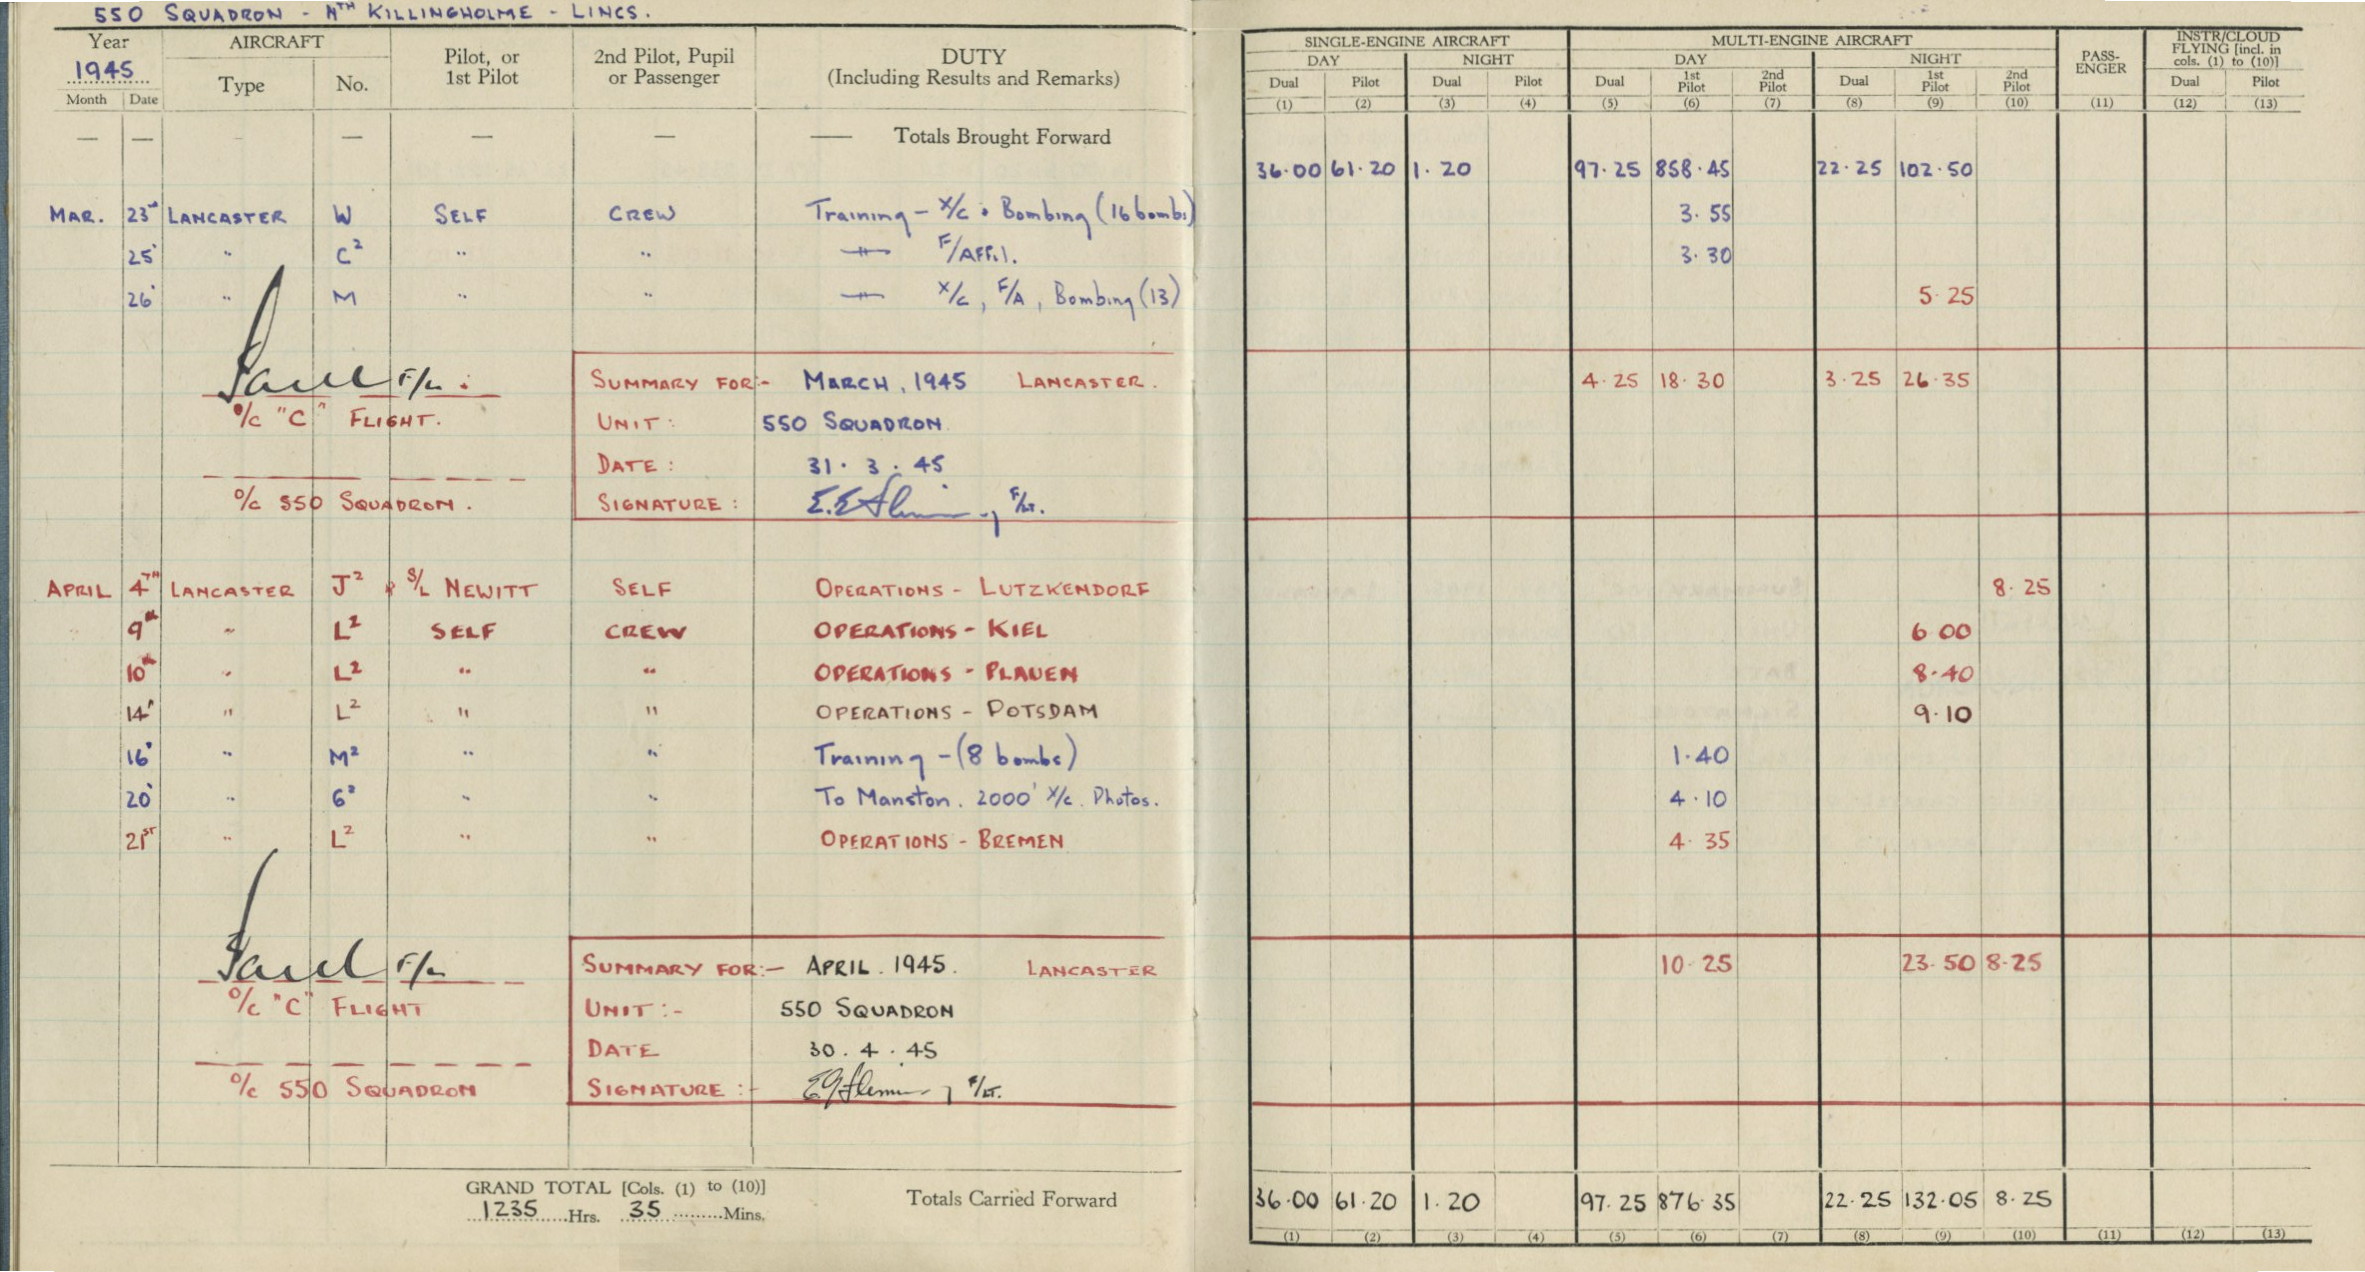 550 SQUADRON - NTH KILLINGHOLME - LINCS.
Year 1945 AIRCRAFT Pilot, or 1st Pilot 2nd Pilot, Pupil or Passenger DUTY (Including Results and Remarks)
Month Date Type No.
SINGLE-ENGINE AIRCRAFT MULTI-ENGINE AIRCRAFT PASS-ENGER INSTR/CLOUD FLYING [incl. in cols. (1) to (10)]
DAY NIGHT DAY NIGHT
Dual Pilot Dual Pilot Dual 1st Pilot 2nd Pilot Dual 1st Pilot 2nd Pilot Dual Pilot
(1) (2) (3) (4) (5) (6) (7) (8) (9) (10) (11) (12) (13)
— — — — — — Totals Brought Forward
36.00 61.20 1.20 97.25 858.45 22.25 102.50
MAR. 23rd LANCASTER W SELF CREW Training - X/C. Bombing (16 bombs) 3.55
25 " C2 " " -"- F/AFFil. 3.30
26 " M " " -"- X/C, F/A, Bombing (13) 5.25
F/L.
O/C "C" FLIGHT.
O/C 550 SQUADRON.
SUMMARY FOR:- MARCH, 1945 LANCASTER. 4.25 18.30 3.25 26.35
UNIT: 550 SQUADRON
DATE: 31.3.45
SIGNATURE: E.E Fleming F/LT.
APRIL 4TH LANCASTER J2 S/L NEWITT SELF OPERATIONS - LUTZKENDORF 8.25
9th " L2 SELF CREW OPERATIONS - KIEL 6.00
10th " L2 " " OPERATIONS - PLAUEN 8.40
14 " L2 " " OPERATIONS - POTSDAM 9.10
16 " M2 " " Training - (8 bombs) 1.40
20 " G2 " " To Manston. 2000' X/C. Photos. 4.10
21ST " L2 " " OPERATIONS - BREMEN 4.35
F/L
O/C "C" FLIGHT
O/C 550 SQUADRON
SUMMARY FOR:- APRIL. 1945. LANCASTER 10.25 23.50 8.25
UNIT:- 550 SQUADRON
DATE 30.4.45
SIGNATURE:- Fleming F/LT.
GRAND TOTAL [Cols. (1) to (10)]
1235 Hrs. 35 Mins.
Totals Carried Forward 36.00 61.20 1.20 97.25 876.35 22.25 132.05 8.25
(1) (2) (3) (4) (5) (6) (7) (8) (9) (10) (11) (12) (13)